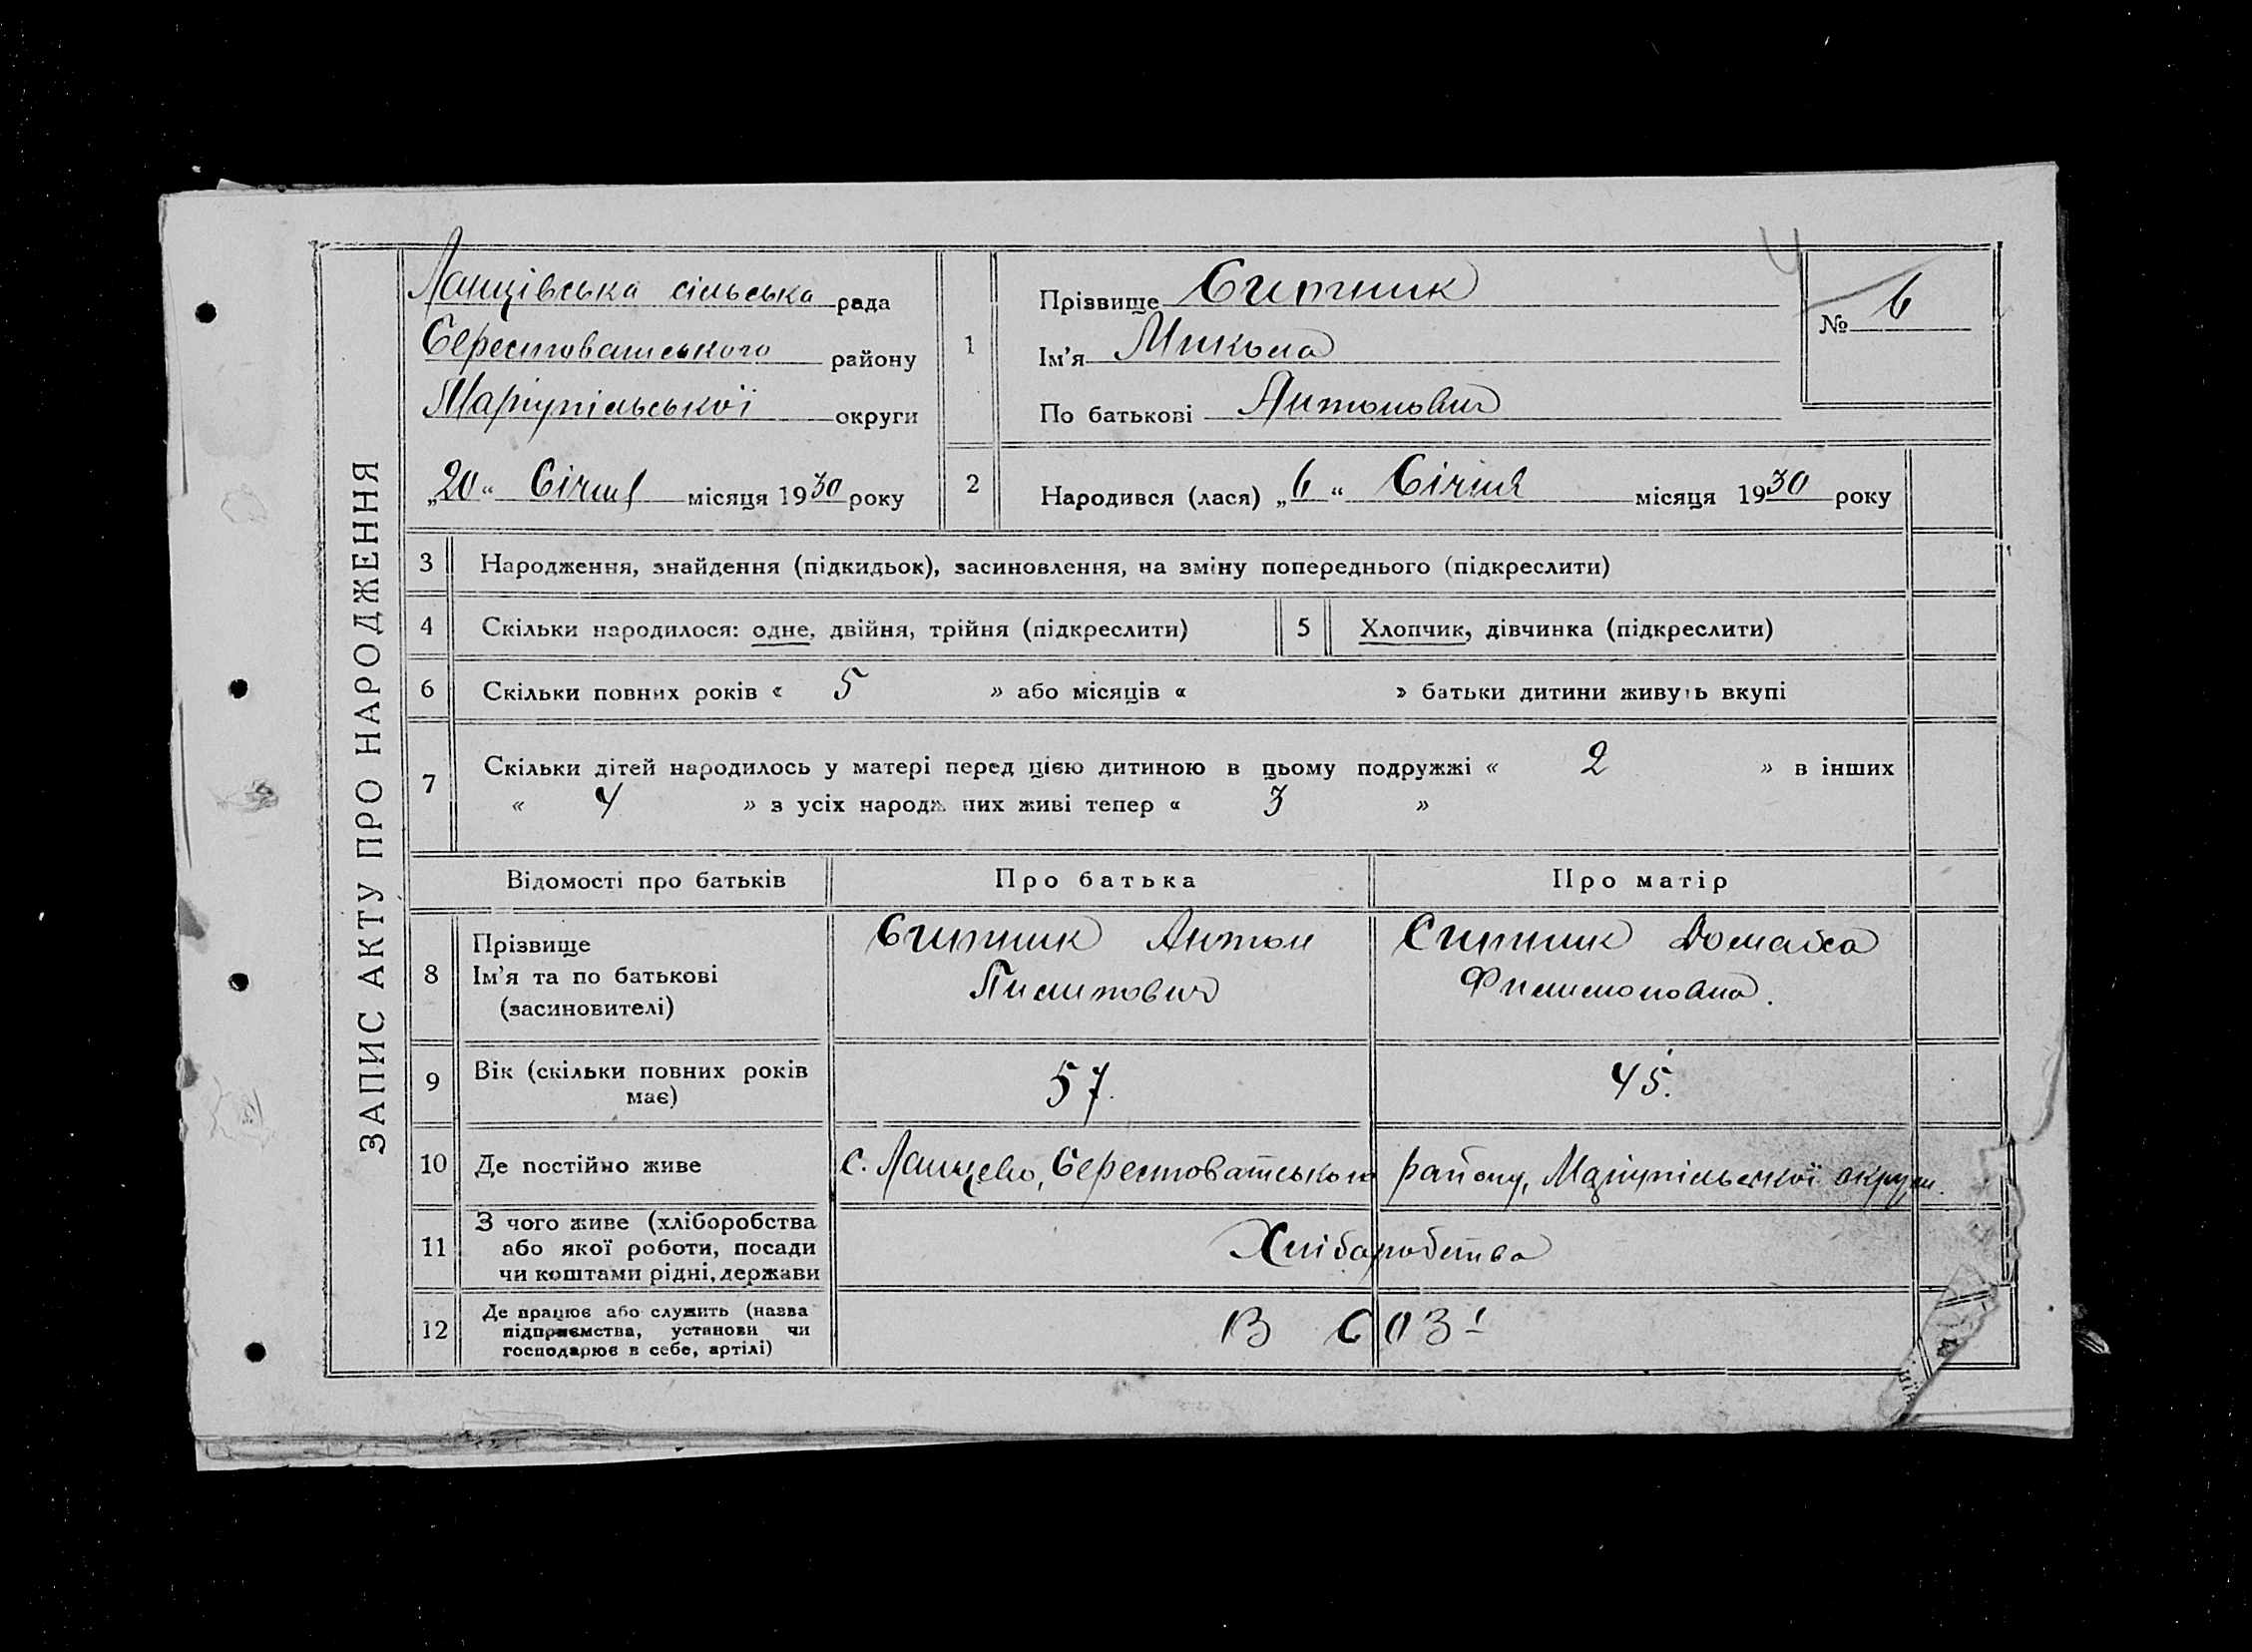 ЗАПИС АКТУ ПРО НАРОДЖЕННЯ
Ланцівська сільська рада
Берестоватського району
Маріупільської округи
„20“ Січня місяця 1930 року
1
Прізвище Ситник
Ім’я Микола
По батькові Антонович
№ 6
2
Народився (лася) „6“ Січня місяця 1930 року
3 Народження, знайдення (підкидьок), засиновлення, на зміну попереднього (підкреслити)
4 Скільки народилося: одне, двійня, трійня (підкреслити) 5 Хлопчик, дівчинка (підкреслити)
6 Скільки повних років « 5 » або місяців « » батьки дитини живуть вкупі
7 Скільки дітей народилось у матері перед цією дитиною в цьому подружжі « 2 » в інших
« 4 » з усіх народж них живі тепер « 3 »
Відомості про батьків Про батька Про матір
8 Прізвище
Ім’я та по батькові
(засиновителі)
Ситник Антон
Пилипович
Ситник Домаха
Филимоновна.
9 Вік (скільки повних років
має)
57. 45.
10 Де постійно живе с. Ланцево, Берестоватського району, Маріупільської округи.
11 З чого живе (хліборобства
або якої роботи, посади
чи коштами рідні, держави
Хліборобства
12 Де працює або служить (назва
підприємства, установи чи
господарює в себе, артілі)
В СОЗі